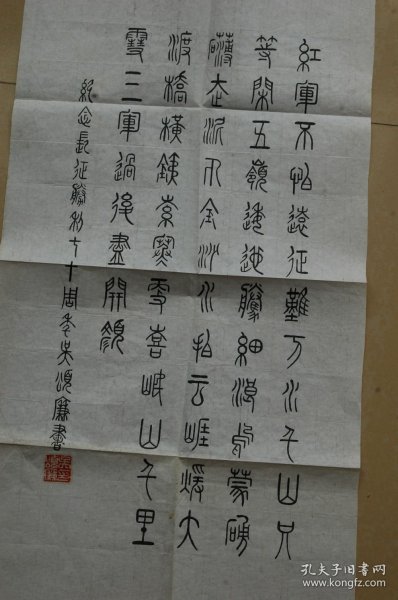 紅軍不怕遠征難万水千山只
等閑五嶺逶迤騰細浪烏蒙磅
礴走泥丸金沙水拍云崖煖大
渡橋橫鐵索寒更喜岷山千里
雪三軍過後盡開顏
紀念長征勝利七十周年吳頌廉書
孔夫子旧书网
www.kongfz.com